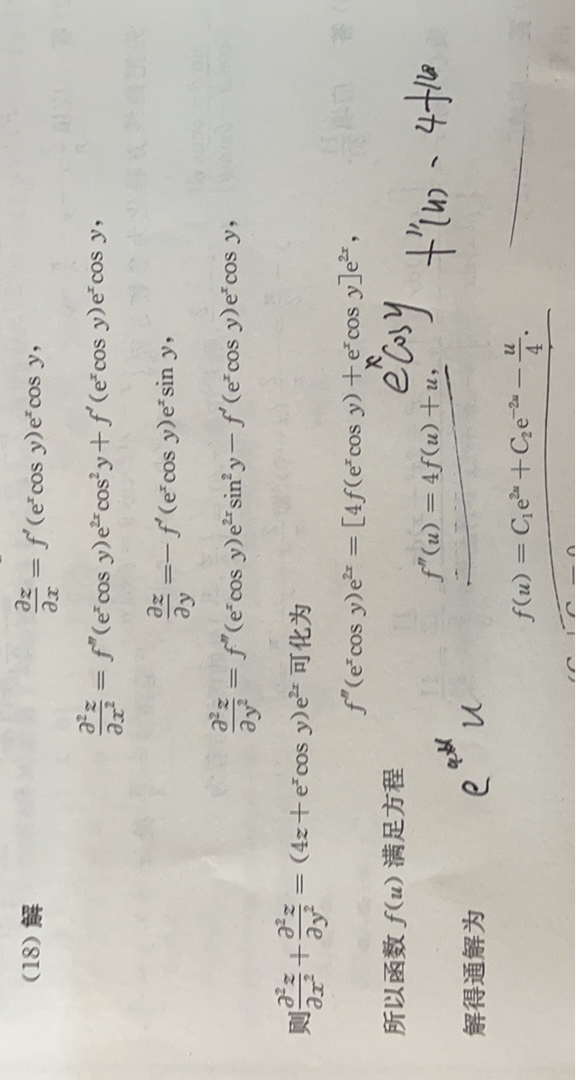 (18) 解
∂z/∂x = f′(eˣcos y)eˣcos y,
∂²z/∂x² = f″(eˣcos y)e²ˣcos²y + f′(eˣcos y)eˣcos y,
∂z/∂y = − f′(eˣcos y)eˣsin y,
∂²z/∂y² = f″(eˣcos y)e²ˣsin²y − f′(eˣcos y)eˣcos y,
则 ∂²z/∂x² + ∂²z/∂y² = (4z + eˣcos y)e²ˣ 可化为
f″(eˣcos y)e²ˣ = [4f(eˣcos y) + eˣcos y]e²ˣ,
eˣcosy
所以函数 f(u) 满足方程
f″(u) = 4f(u) + u,
f″(u) - 4f(u)
u
解得通解为
f(u) = C₁e²ᵘ + C₂e⁻²ᵘ − u/4.